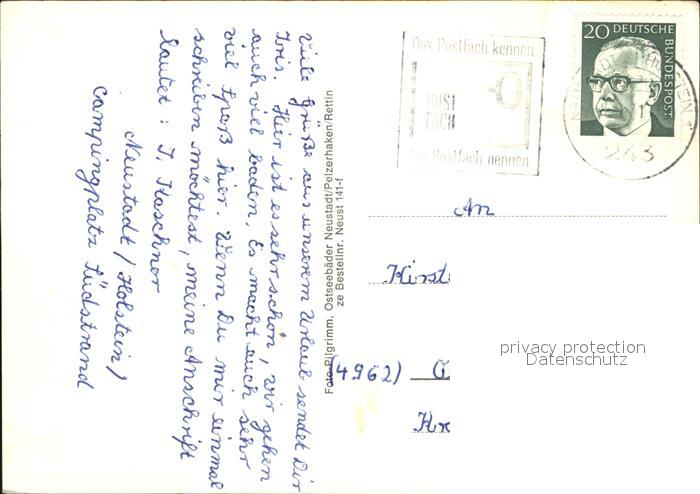 Viele Grüße aus unserem Urlaub sendet Dir
Iris. Hier ist es sehr schön, wir gehen
auch viel baden. Es macht auch sehr
viel Spaß hier. Wenn Du mir einmal
schreiben möchtest, meine Anschrift
lautet: I. Kaschner
Neustadt/Holstein/
Campingplatz Südstrand
Foto-Pilgrimm, Ostseebäder Neustadt/Pelzerhaken/Rettin
ze Bestellnr. Neust 141-f
Das Postfach kennen
POST
FACH
das Postfach nennen
20 DEUTSCHE
BUNDESPOST
243
An
Kirst
(4962)
privacy protection
Datenschutz